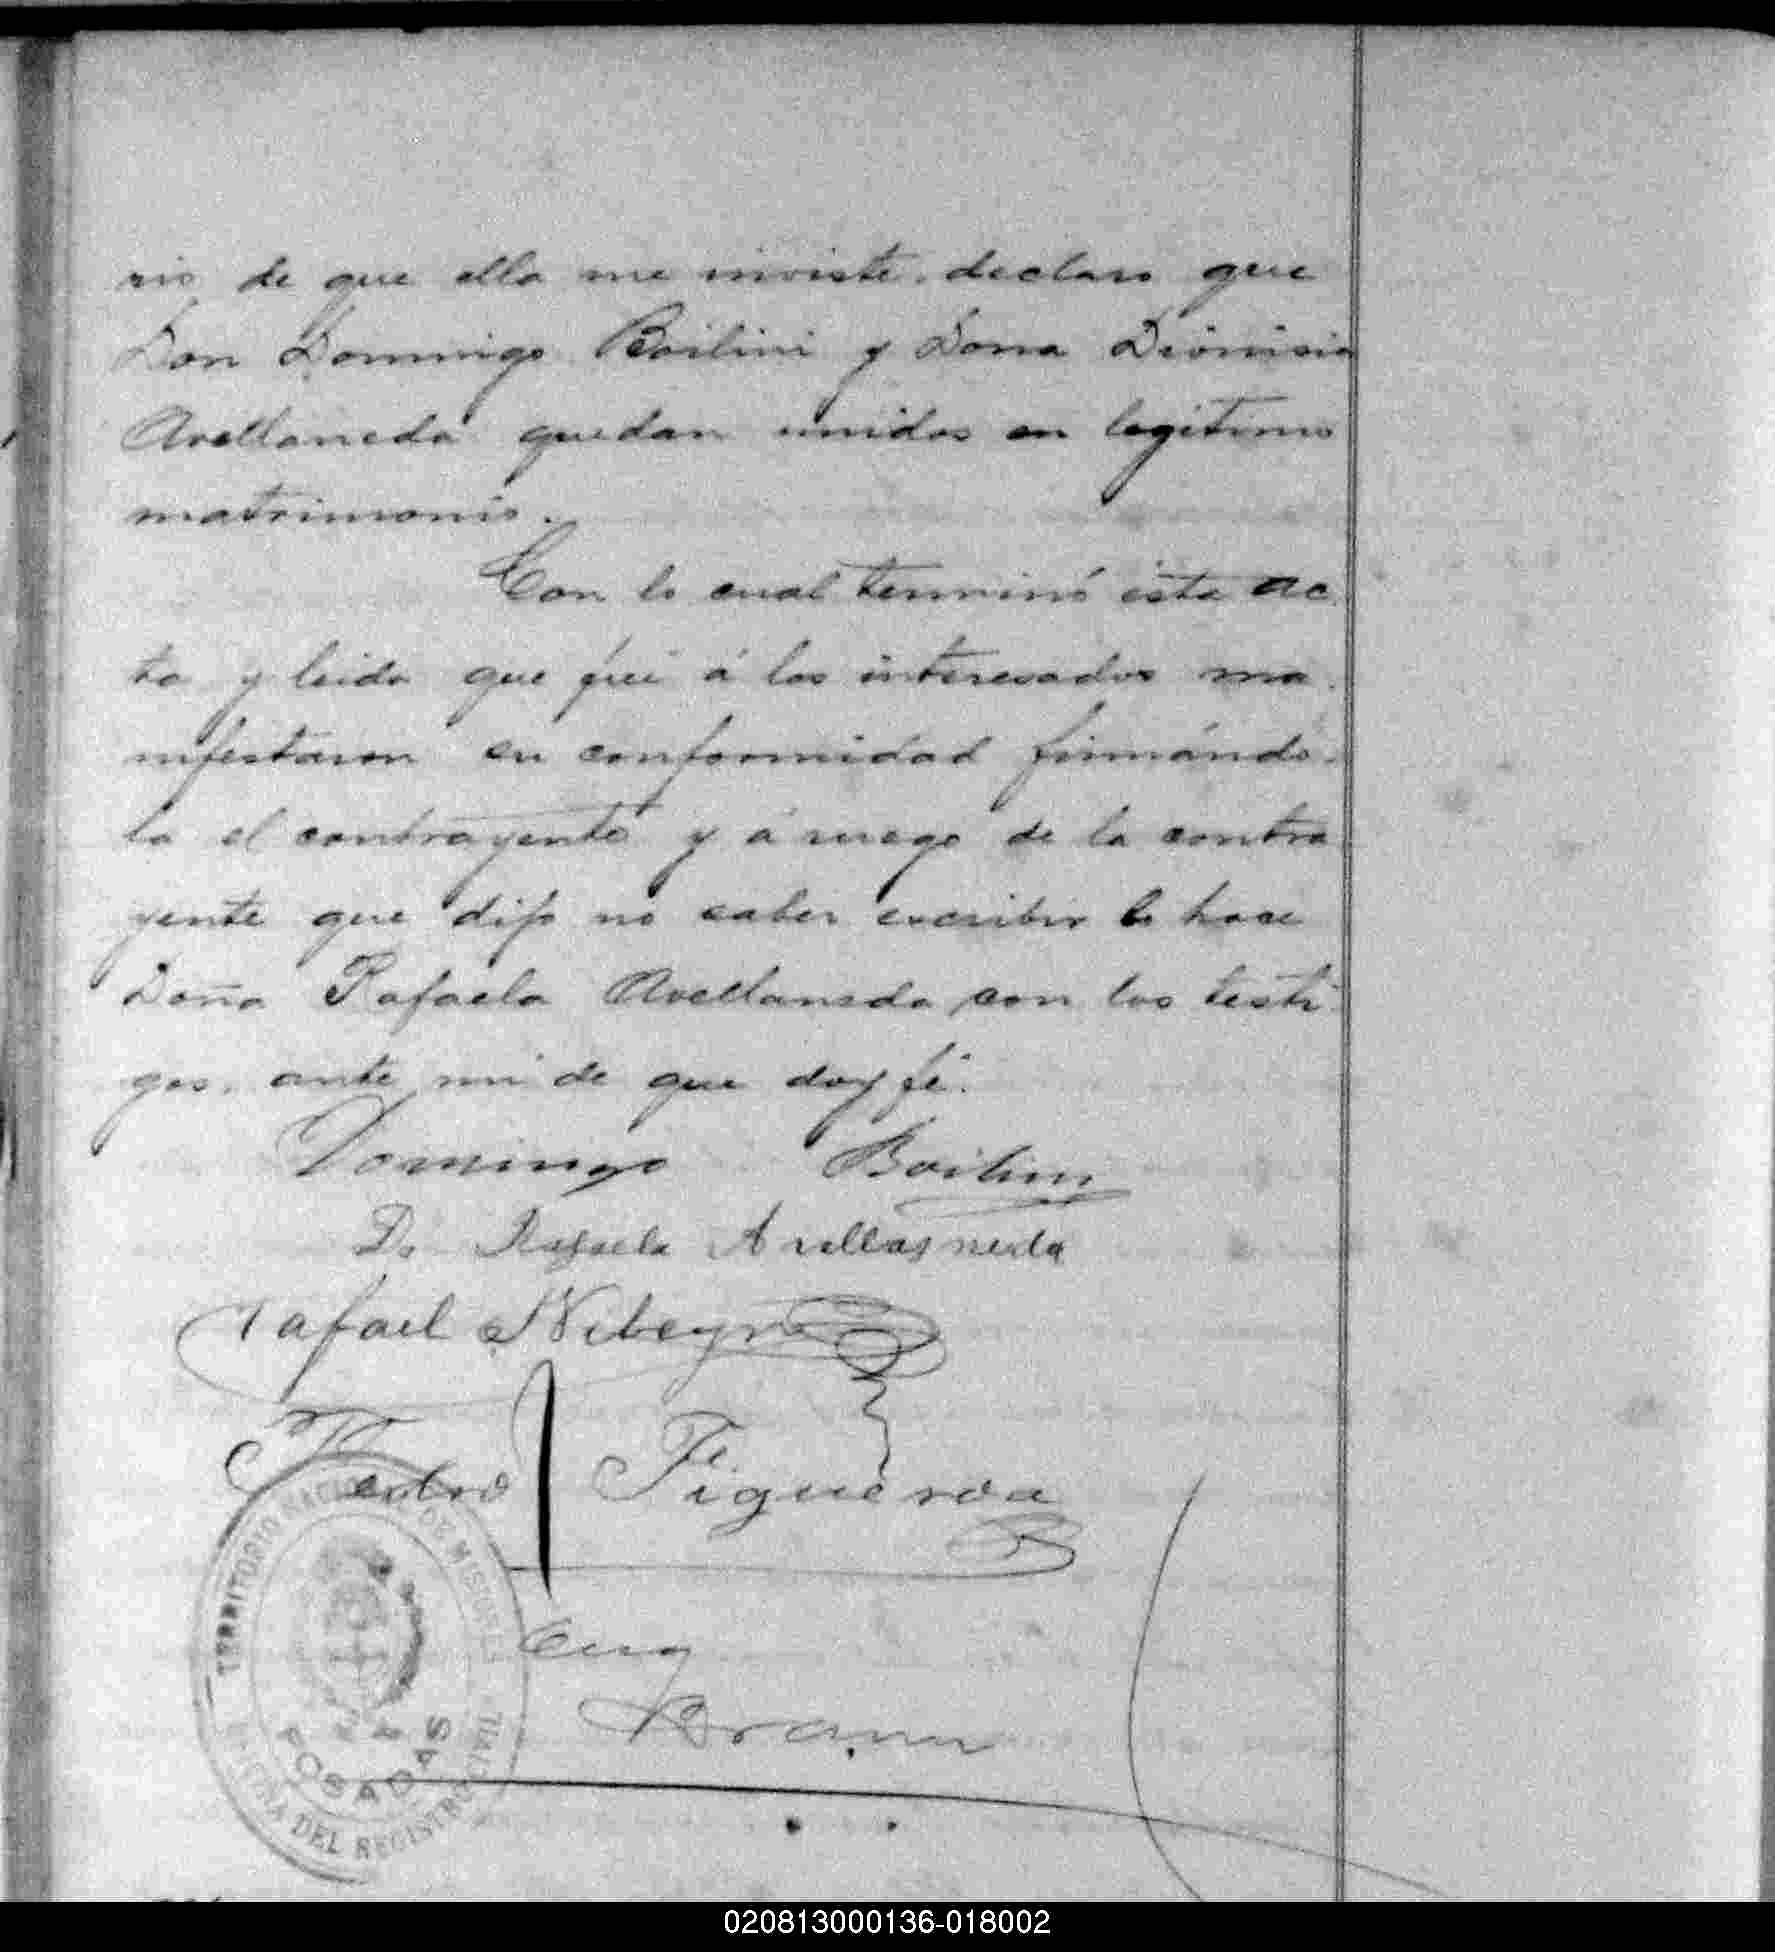 rio de que ella me inviste, declaro que
Don Domingo Boilini y Dona Dionisia
Avellaneda quedan unidos en legitimo
matrimonio.
Con lo cual terminó esta ac
ta y leida que fué á los interesados ma
nifestaron su conformidad firmándo-
la el contrayente y á ruego de la contra
yente que dijo no saber escribir lo hace
Doña Rafaela Avellaneda con los testi
gos, ante mi de que doy fé.
Domingo Boilini
Da Rafaela Avellaneda
Rafael Nibeyro
Pedro Figueroa
Eug
TERRITORIO NACIONAL DE MISIONES
POSADAS
OFICINA DEL REGISTRO CIVIL
020813000136-018002